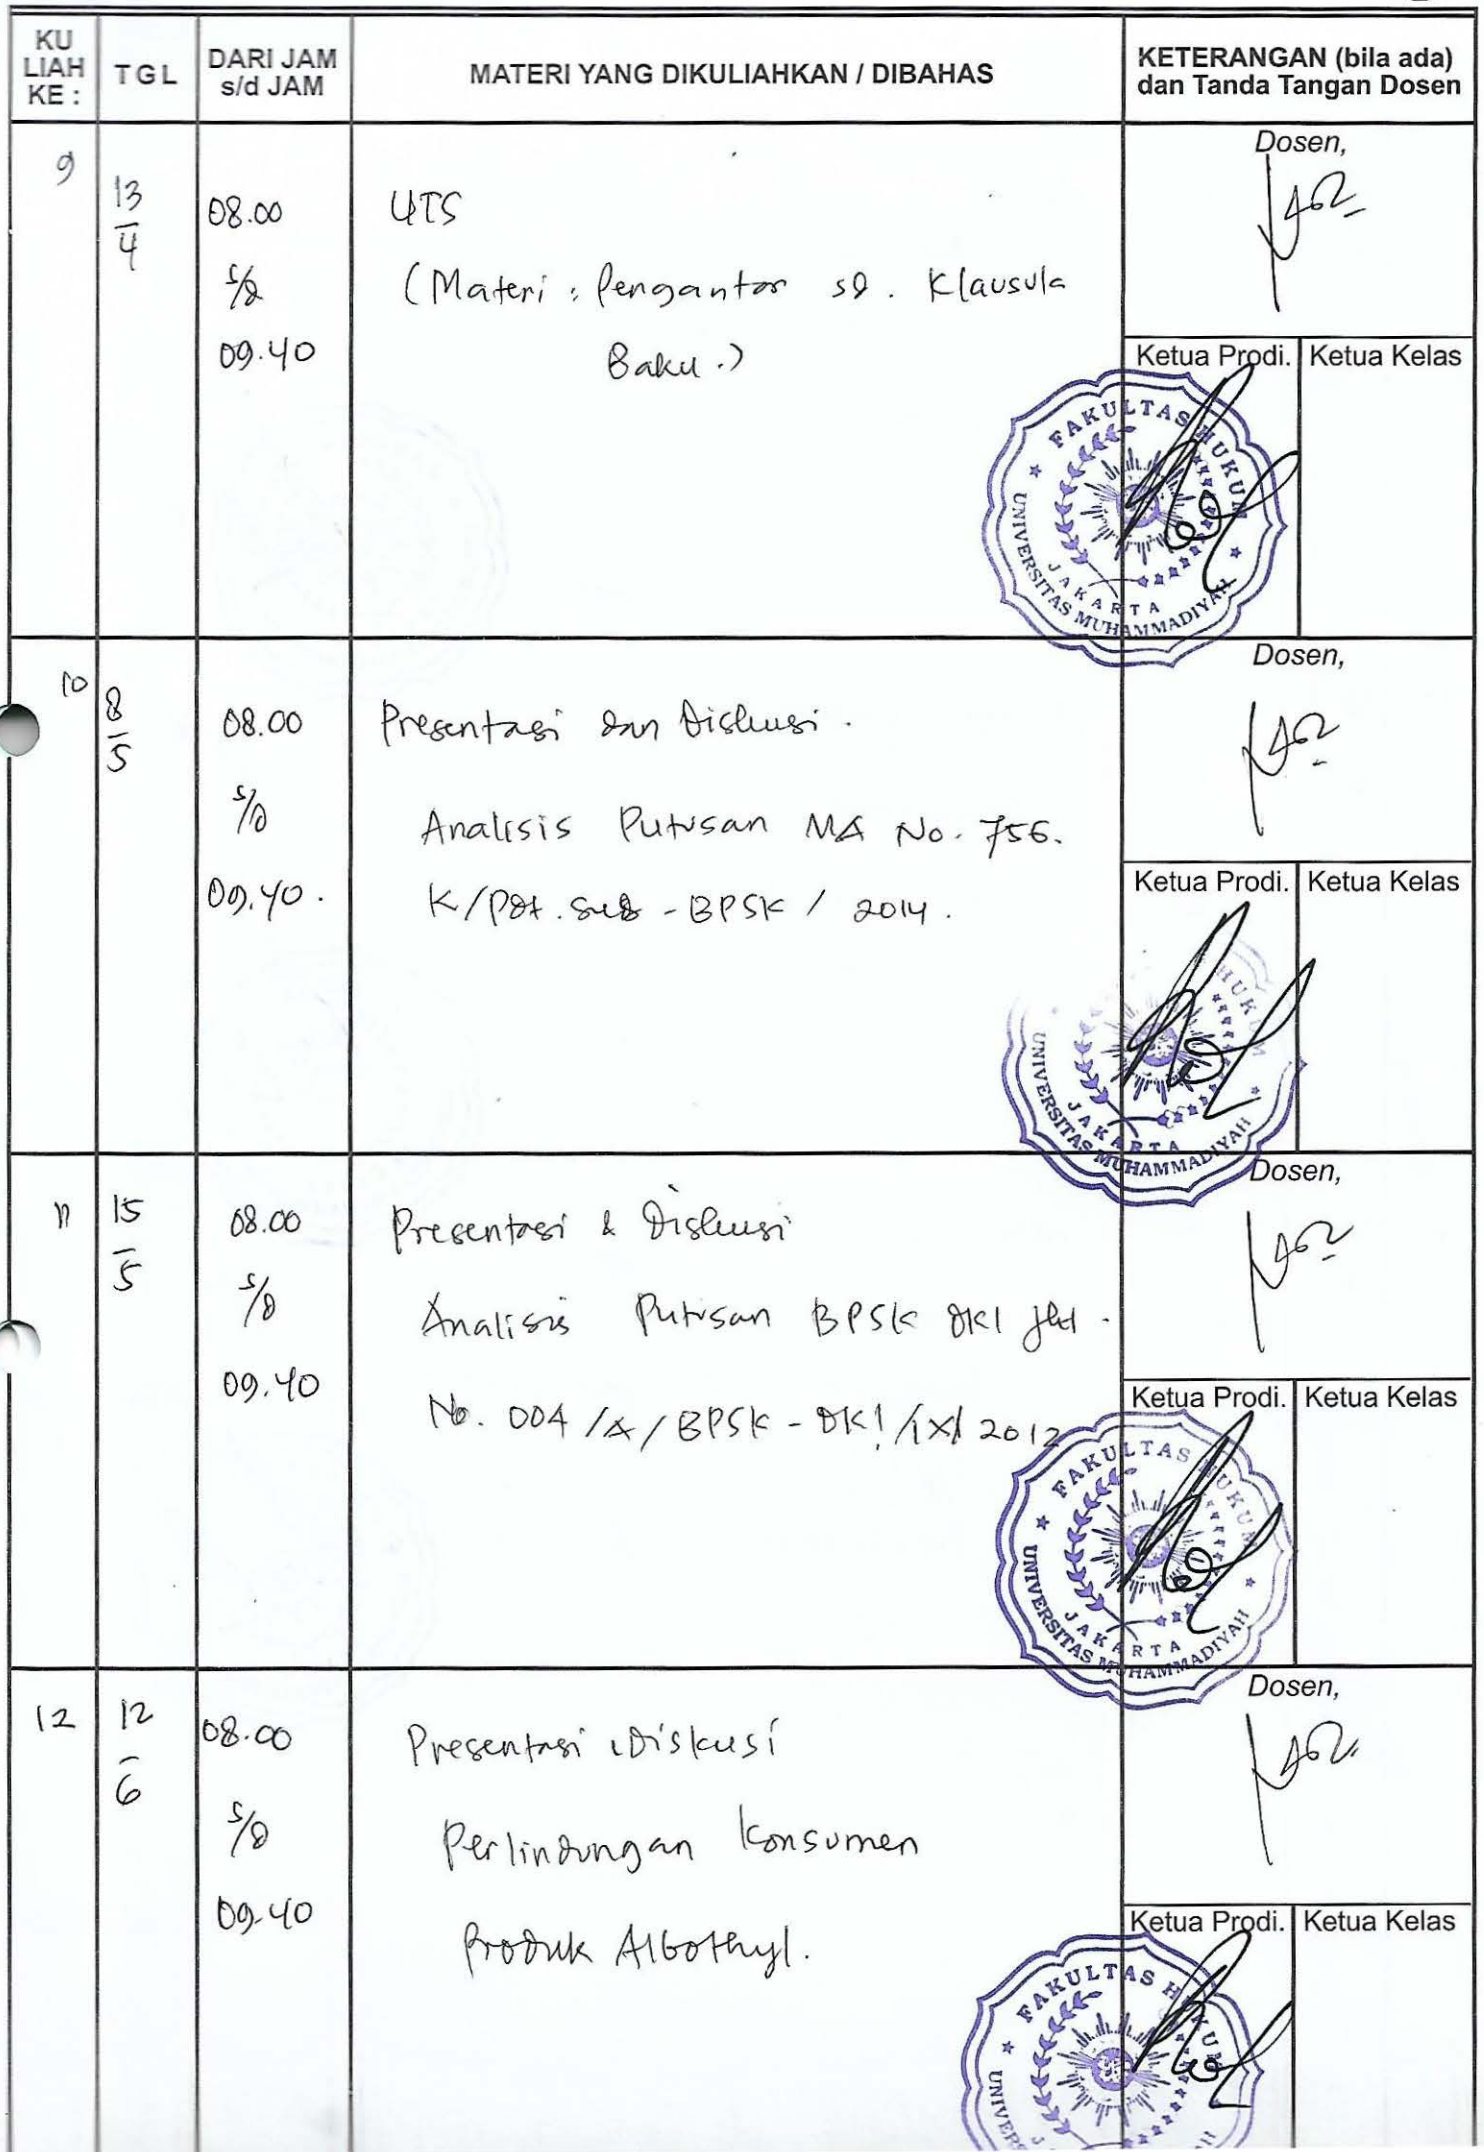 KU LIAH KE :
TGL
DARI JAM s/d JAM
MATERI YANG DIKULIAHKAN / DIBAHAS
KETERANGAN (bila ada) dan Tanda Tangan Dosen
9
13/4
08.00
s/d
09.40
UTS
(Materi : Pengantar sd. Klausula
Baku.)
Dosen,
Ketua Prodi.
Ketua Kelas
FAKULTAS HUKUM
JAKARTA
UNIVERSITAS MUHAMMADIYAH
10
8/5
08.00
s/d
09.40.
Presentasi dan Diskusi.
Analisis Putusan MA No. 756.
K/Pdt.Sus - BPSK / 2014.
Dosen,
Ketua Prodi.
Ketua Kelas
HUKUM
JAKARTA
UNIVERSITAS MUHAMMADIYAH
11
15/5
08.00
s/d
09.40
Presentasi & Diskusi
Analisis Putusan BPSK DKI Jkt.
No. 004/A/BPSK-DKI/IX/2012
Dosen,
Ketua Prodi.
Ketua Kelas
FAKULTAS HUKUM
JAKARTA
UNIVERSITAS MUHAMMADIYAH
12
12/6
08.00
s/d
09.40
Presentasi & Diskusi
Perlindungan Konsumen
Produk Albothyl.
Dosen,
Ketua Prodi.
Ketua Kelas
FAKULTAS HUKUM
UNIVER